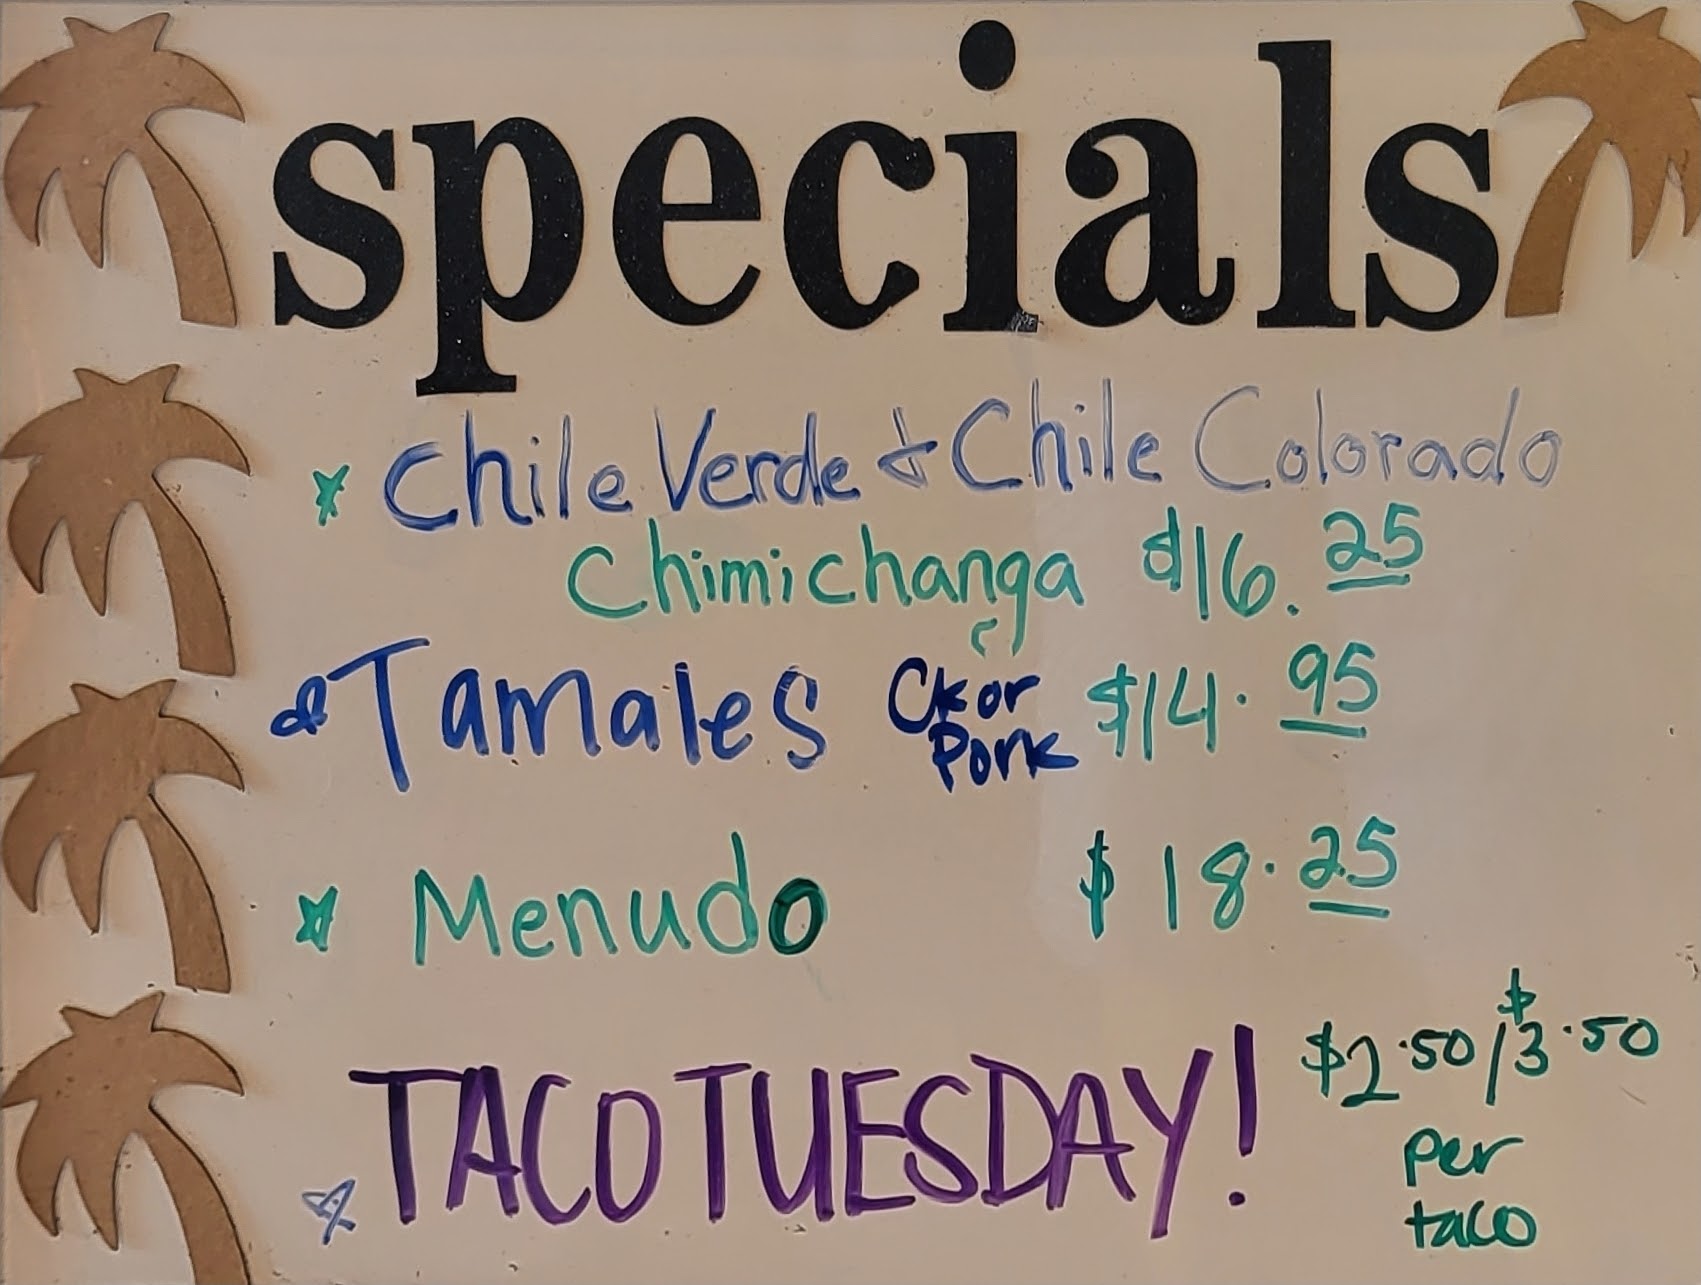 specials
Chile Verde & Chile Colorado
Chimichanga $16.25
Tamales Ck or Pork $14.95
Menudo $18.25
TACO TUESDAY! $2.50/$3.50
per
taco